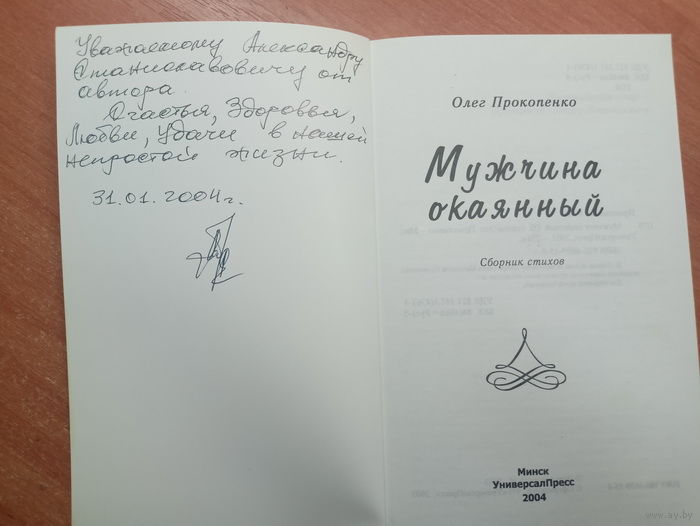 Уважаемому Александру
Станиславовичу от
автора.
Счастья, Здоровья,
Любви, Удачи в нашей
непростой жизни.
31.01.2004г.
Олег Прокопенко
Мужчина
окаянный
Сборник стихов
Минск
УниверсалПресс
2004
www.ay.by